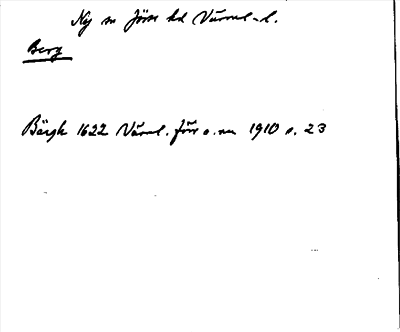 Ny sn Jösse hd Värml. l.
Berg
Bärgh 1622 Värml. förr o. nu 1910 s. 23